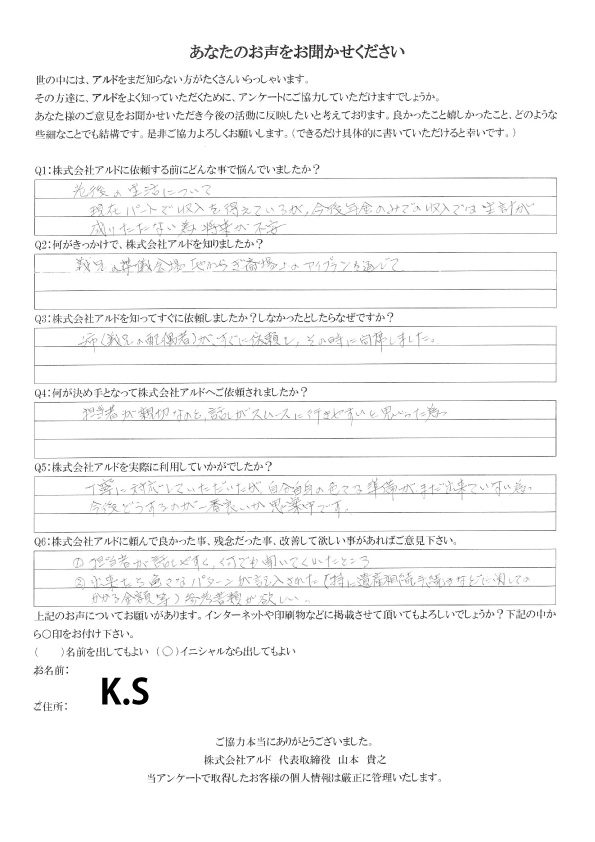 あなたのお声をお聞かせください
世の中には、アルドをまだ知らない方がたくさんいらっしゃいます。
その方達に、アルドをよく知っていただくために、アンケートにご協力していただけますでしょうか。
あなた様のご意見をお聞かせいただき今後の活動に反映したいと考えております。良かったこと嬉しかったこと、どのような
些細なことでも結構です。是非ご協力よろしくお願いします。（できるだけ具体的に書いていただけると幸いです。）
Q1：株式会社アルドに依頼する前にどんな事で悩んでいましたか？
老後の生活について
現在パートで収入を得えているが、今後年金のみでの収入では生計が
成りたたない為将来が不安
Q2：何がきっかけで、株式会社アルドを知りましたか？
義兄の葬儀会場「」のアイプランを通して
Q3：株式会社アルドを知ってすぐに依頼しましたか？しなかったとしたらなぜですか？
姉（義兄の配偶者）が、すぐに依頼し、その時に同席しました。
Q4：何が決め手となって株式会社アルドへご依頼されましたか？
担当者が親切なのと、話しがスムースに行きやすいと思った為。
Q5：株式会社アルドを実際に利用していかがでしたか？
丁寧に対応していただいたが、自分自身の準備がまだ出来ていない為。
今後どうするのが一番良いか思案中です。
Q6：株式会社アルドに頼んで良かった事、残念だった事、改善して欲しい事があればご意見下さい。
① 担当者が話しやすく、何でも聞いてくれたところ
② 出来たら色々なパターンが記入された（特に遺産相続手続きなどに関しての
かかる金額等）参考書類が欲しい。
上記のお声についてお願いがあります。インターネットや印刷物などに掲載させて頂いてもよろしいでしょうか？下記の中か
ら○印をお付け下さい。
（　　）名前を出してもよい （○）イニシャルなら出してもよい
お名前：
K.S
ご住所：
ご協力本当にありがとうございました。
株式会社アルド 代表取締役 山本 貴之
当アンケートで取得したお客様の個人情報は厳正に管理いたします。